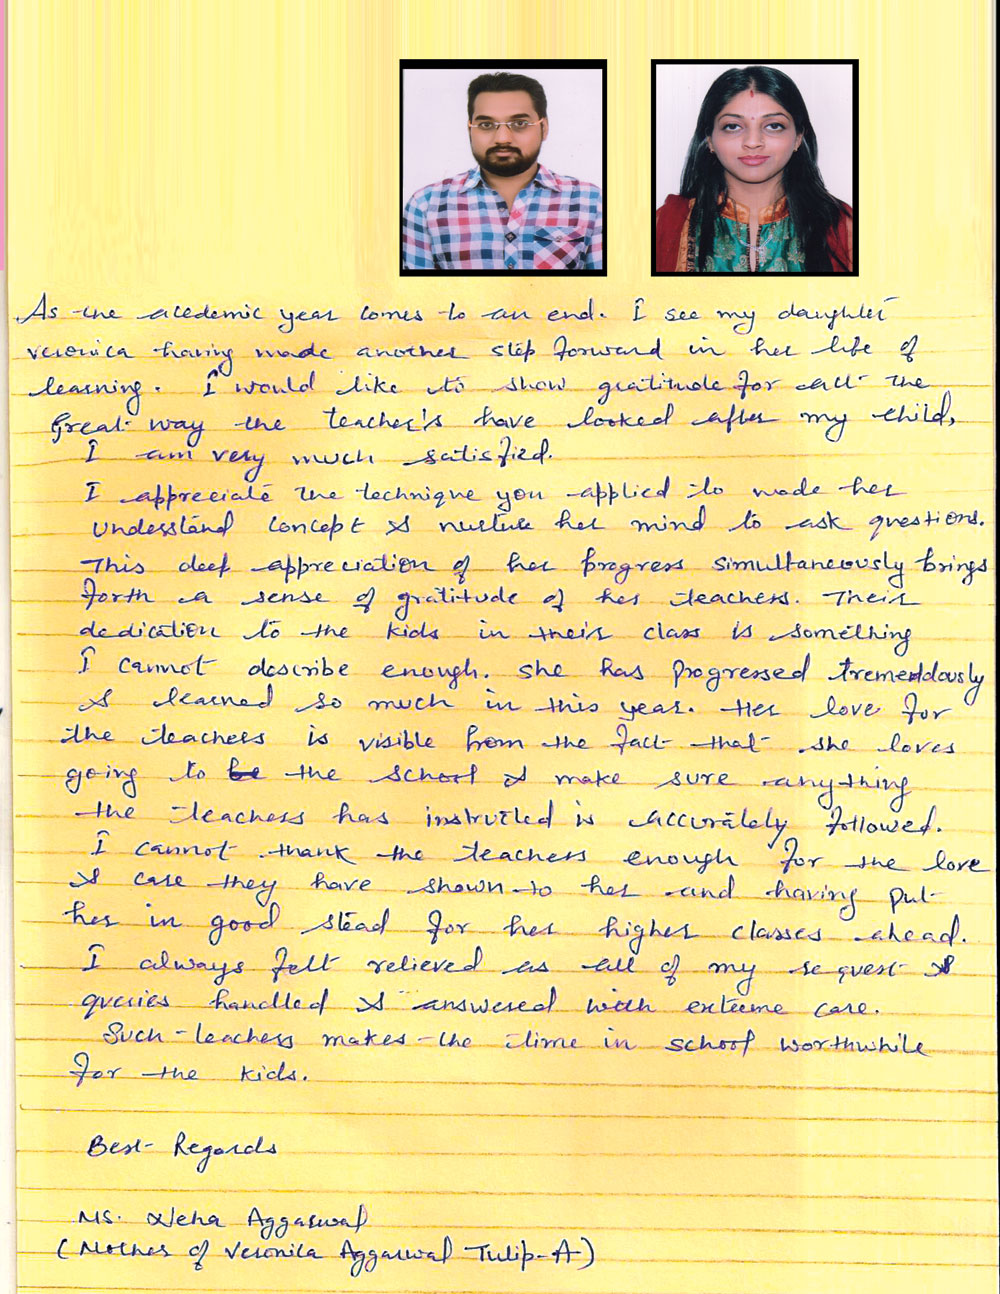 As the acedemic year comes to an end. I see my daughter
Veronica having made another step forward in her life of
learning. I would like to show gratitude for all the
Great way the teacher's have looked after my child,
I am very much satisfied.
I appreciate the technique you applied to made her
understand concept & nurture her mind to ask questions.
This deep appreciation of her progress simultaneously brings
forth a sense of gratitude of her teachers. Their
dedication to the kids in their class is something
I cannot describe enough. she has progressed tremenddously
& learned so much in this year. Her love for
the teachers is visible from the fact that she loves
going to be the school & make sure anything
the teachers has instructed is accurately followed.
I cannot thank the teachers enough for the love
& care they have shown to her and having put
her in good stead for her higher classes ahead.
I always felt relieved as all of my request &
queries handled & answered with extreme care.
Such teachers makes the time in school worthwhile
for the kids.
Best Regards
Ms. Neha Aggarwal
(Mother of Veronica Aggarwal Tulip-A)